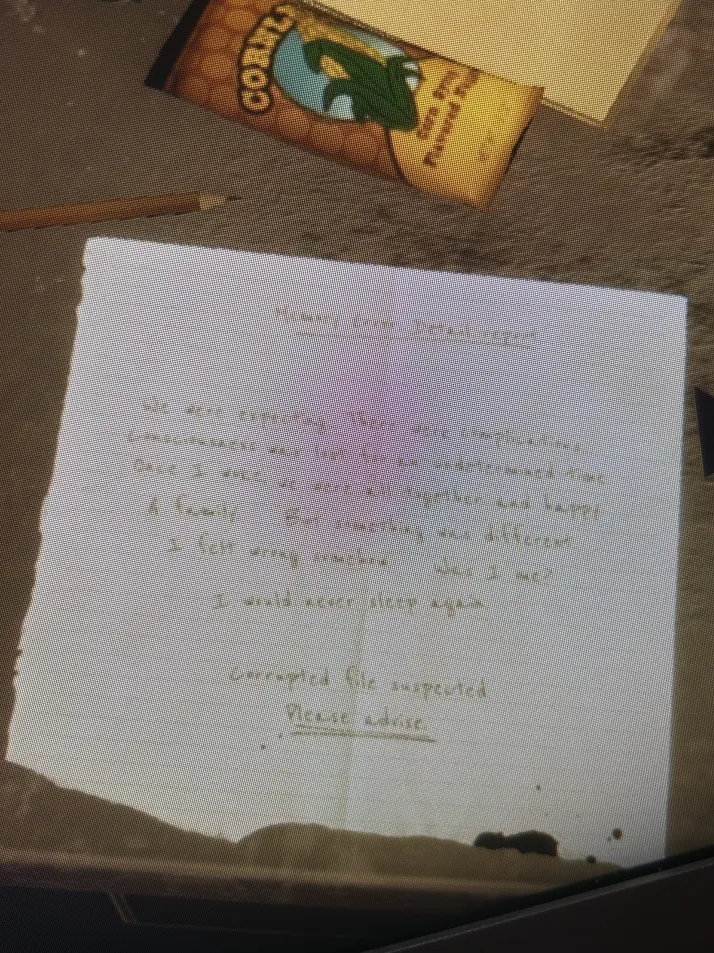 CORNL
Corn Dog
Flavored
Memory Error Detail report
We were expecting. There were complications.
Consciousness was lost for an undetermined time
Once I woke, we were all together and happy
A family But something was different.
I felt wrong somehow Was I me?
I would never sleep again
Corrupted file suspected
Please advise.